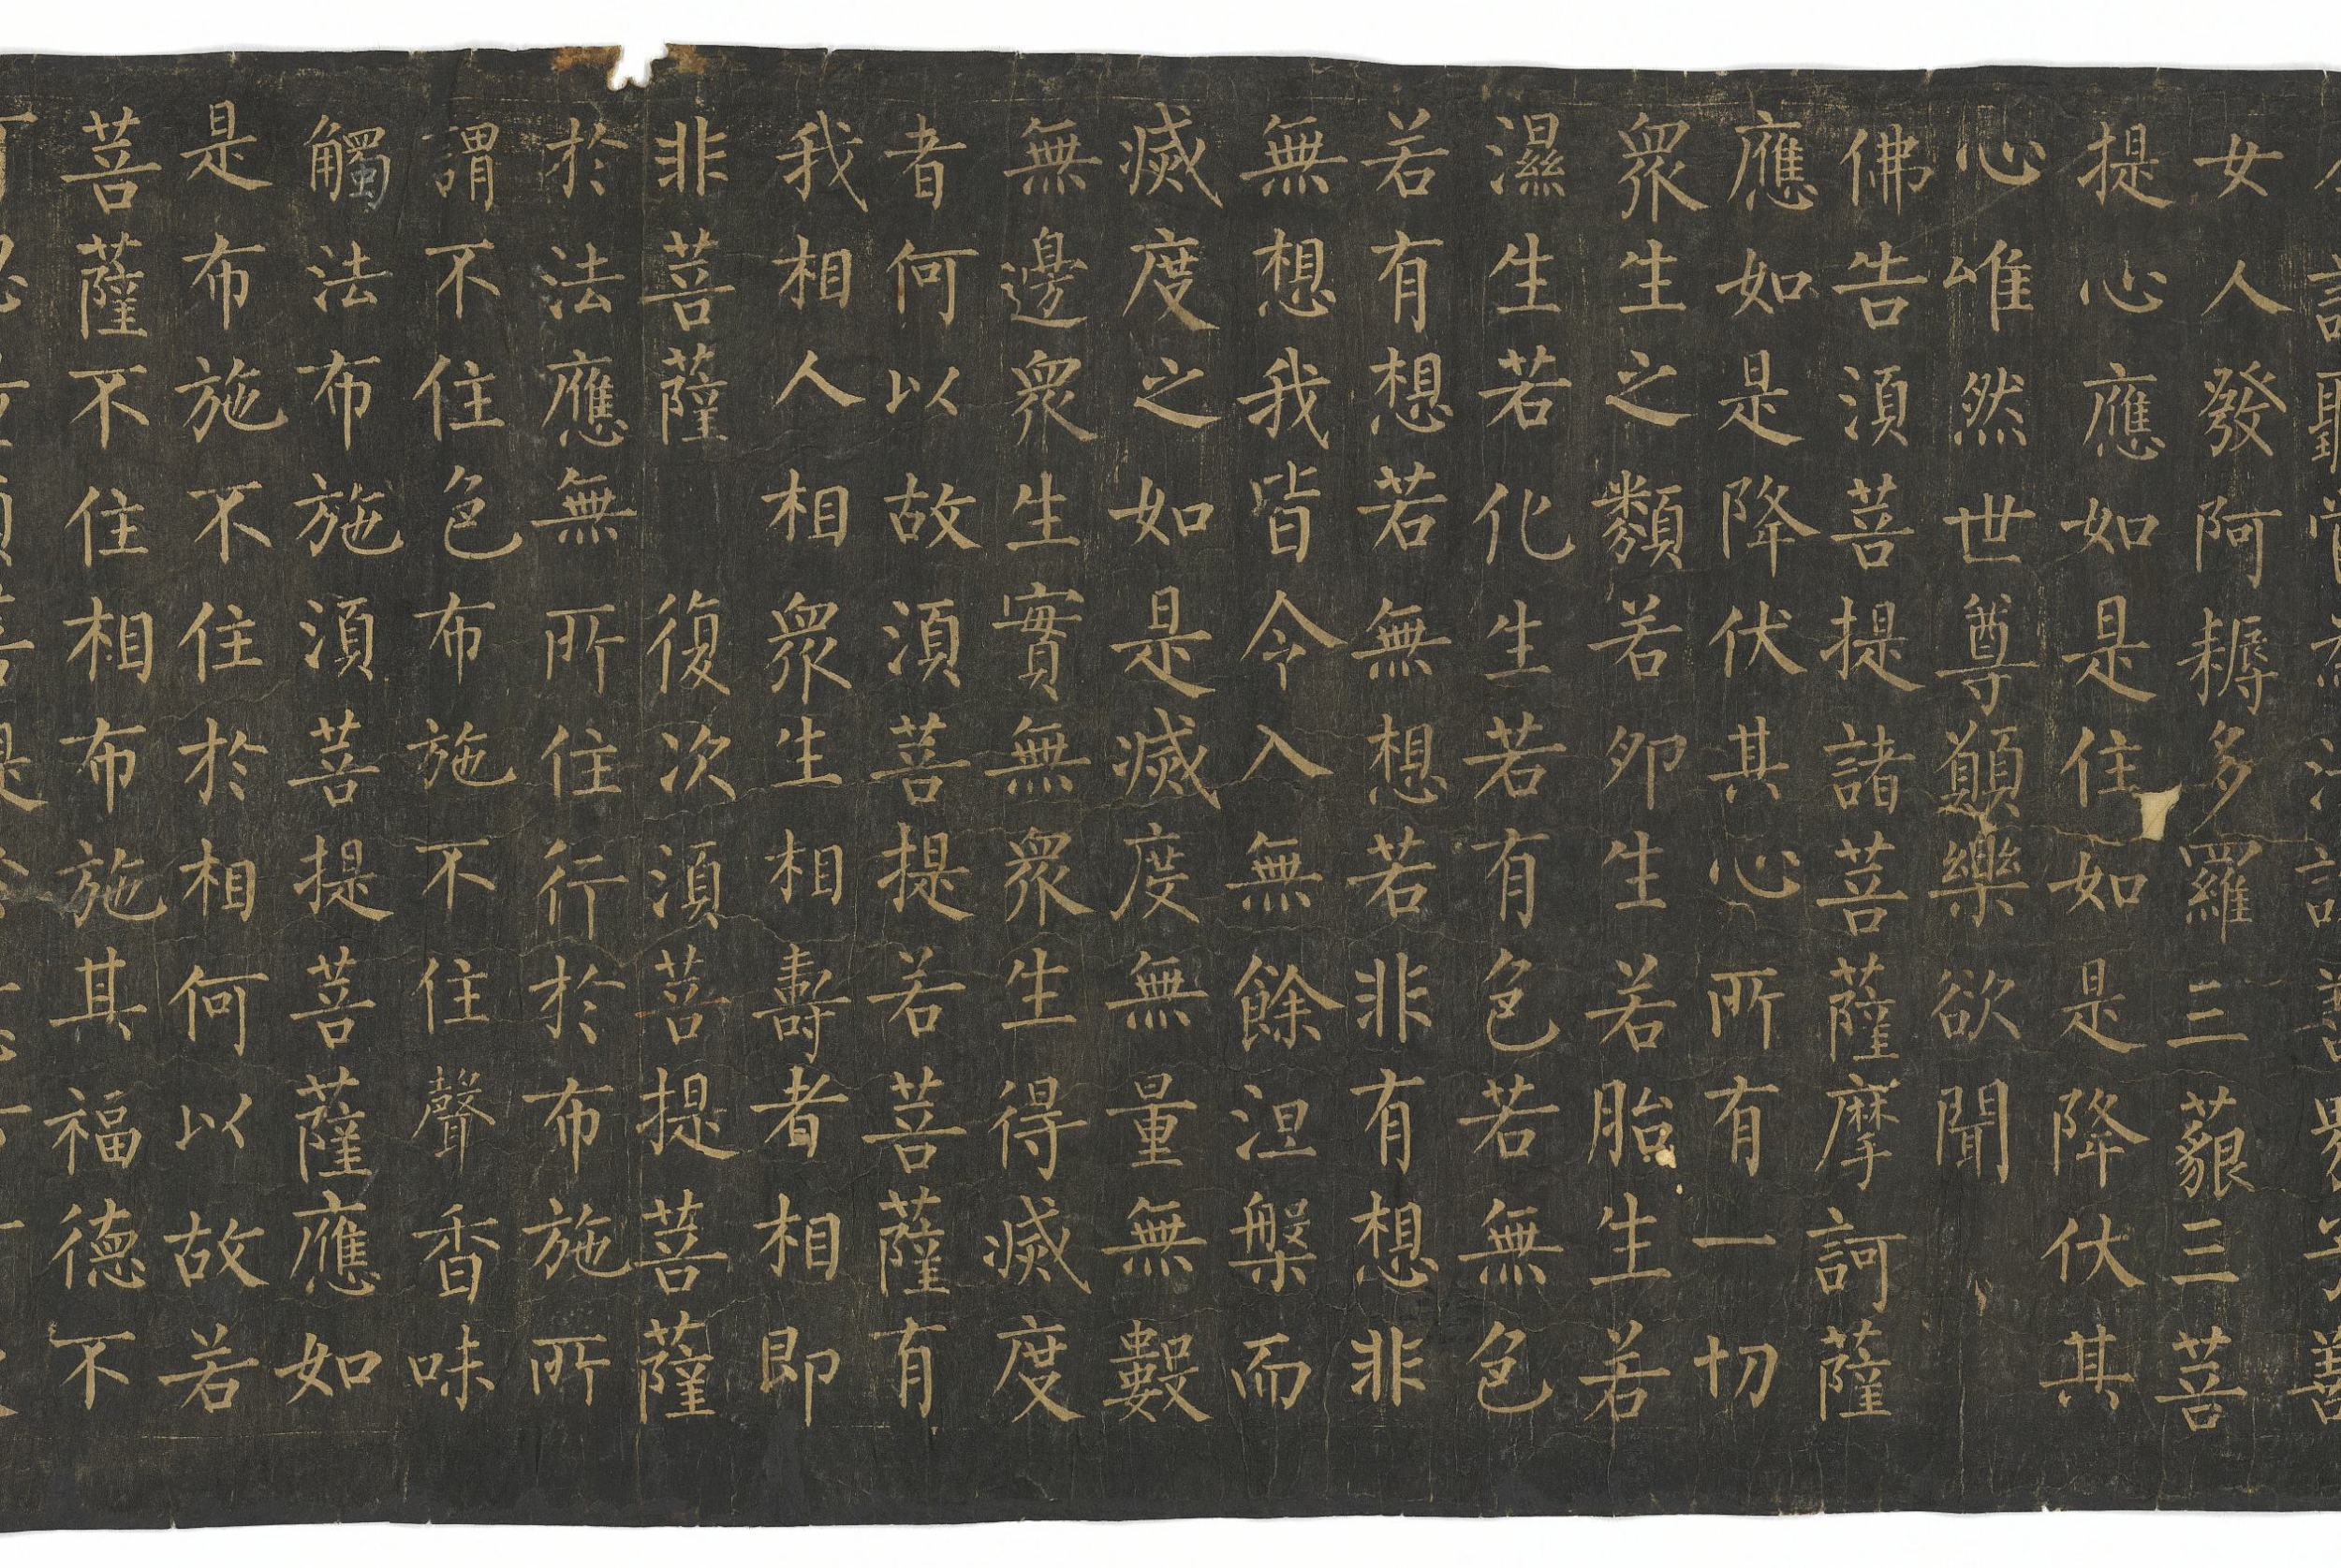 女人發阿耨多羅三藐三菩
提心應如是住如是降伏其
心唯然世尊願樂欲聞
佛告須菩提諸菩薩摩訶薩
應如是降伏其心所有一切
眾生之類若卵生若胎生若
濕生若化生若有色若無色
若有想若無想若非有想非
無想我皆令入無餘涅槃而
滅度之如是滅度無量無數
無邊眾生實無眾生得滅度
者何以故須菩提若菩薩有
我相人相眾生相壽者相即
非菩薩　復次須菩提菩薩
於法應無所住行於布施所
謂不住色布施不住聲香味
觸法布施須菩提菩薩應如
是布施不住於相何以故若
菩薩不住相布施其福德不